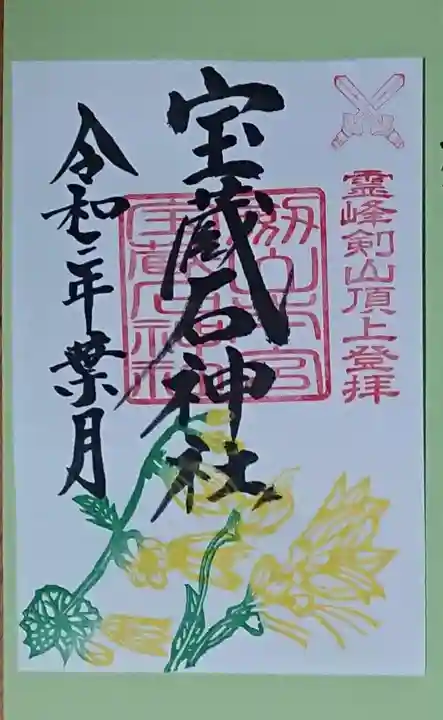 霊峰剣山頂上登拝
宝蔵石神社
劔山本宮
宝蔵石神社
令和二年葉月